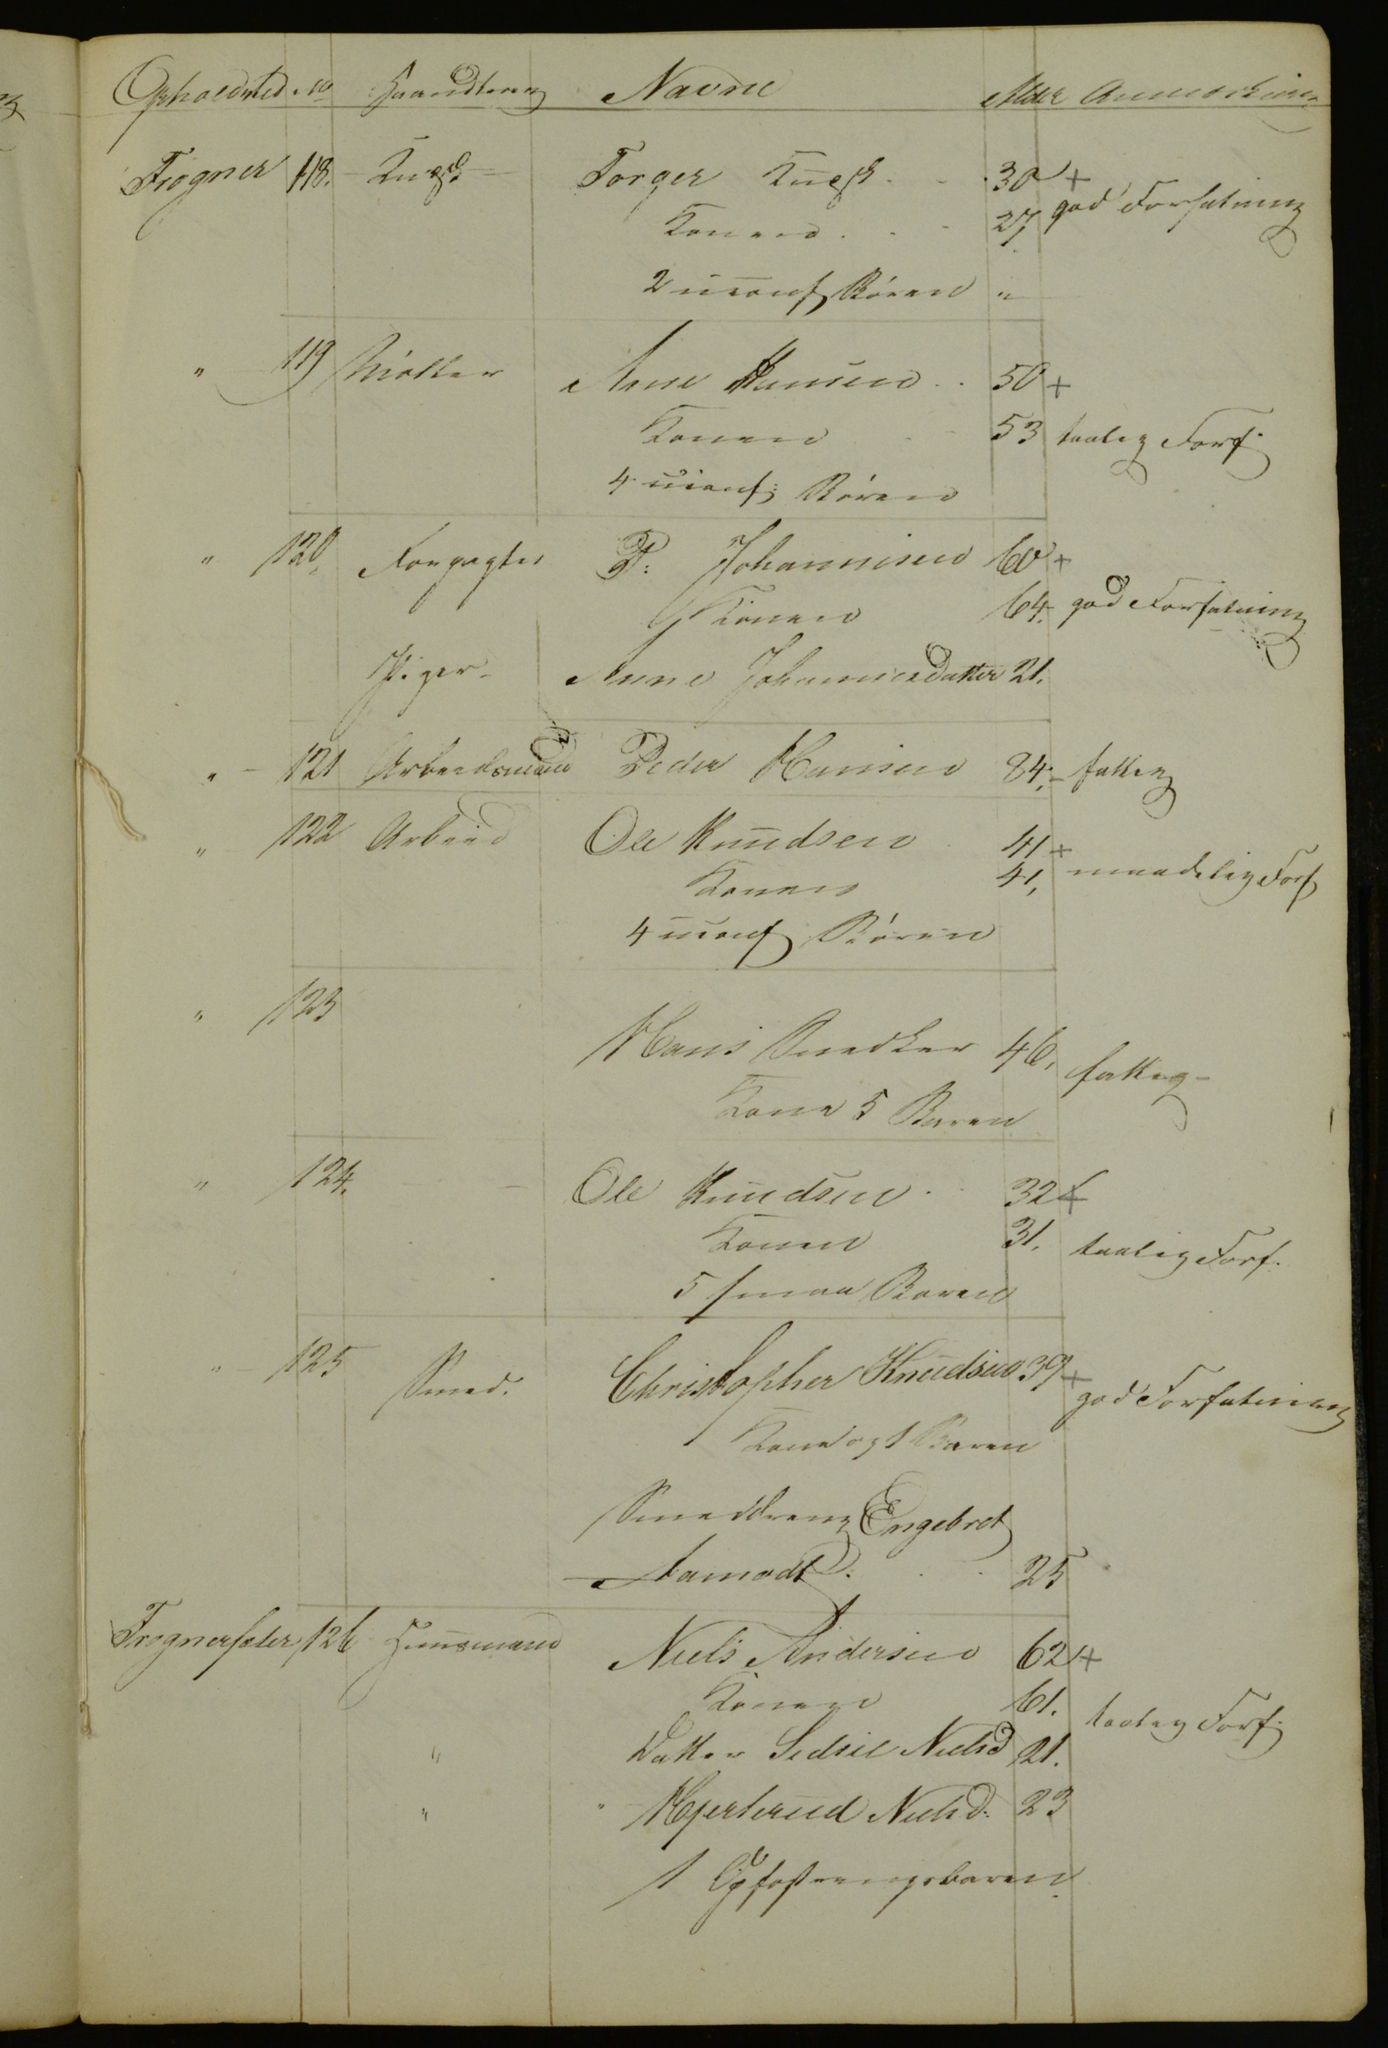 Opholdsted No Haandtering Navne Alder Anmærkning
Frogner 118. Kusk Torger Kusk 30 +
Konen 27. god Forfatning
2 uconf Børen "
" 119 Møller Arne Hansen 50 +
Konen 53 taalig Forf:
4 uconf: Børen
" 120. Forpagter P: Johannisen 60 +
Konen 64. god Forfatning
Piger Anne Johannisdatter 21.
" 121 Arbeidsmand Peder Hansen 84. fattig
" 122 Arbeid Ole Knudsen 41 +
Konen 41, maadelig Forf
4 uconf Børen
" 123
Hans Snedker 46, fattig
Kone 5 Børen
" 124. Ole Knudsen 32 +
Konen 31. taalig Forf.
5 smaa Børen
" 125 Smed. Christopher Knudsen 39 +
god Forfatning
Kone og 1 Barn
Smeddreng Engebret
Aamodt 25
Frognersæter 126 Huusmand Niels Andersen 62 +
Konen 61. taalig Forf:
" Datter Sidsil Nielsd 21.
" " Nielsd: 23
1 Opfostringsbaren